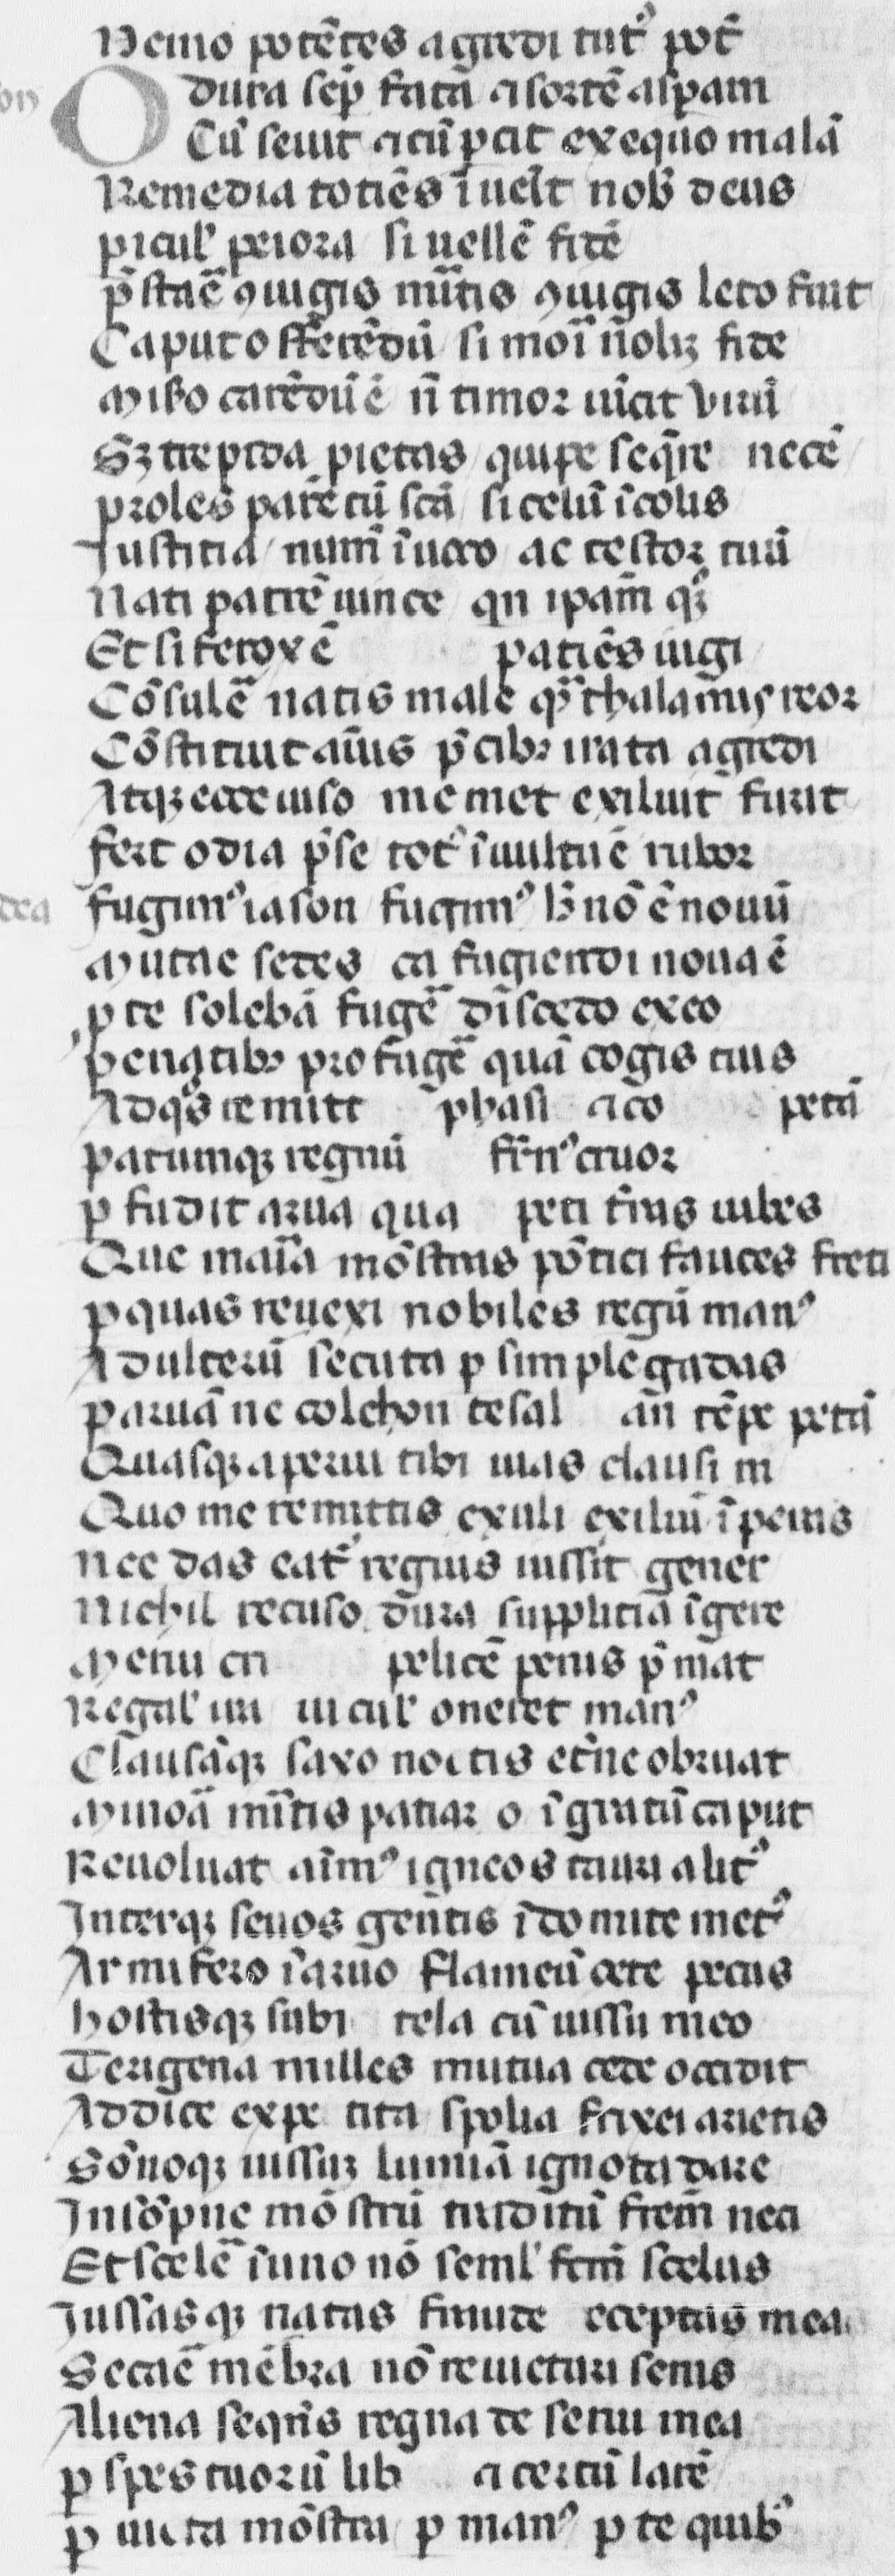 Nemo potẽtes agredi tut᾽ pot̃
O dura sep̃ fata ⁊ sortẽ asp̱am
Cũ seuit ⁊ cũ p̱cit ex equo malã
Remedia totiẽs ĩueĩt nob᾽ deus
p̱icul᾽ peiora si uellẽ fidẽ
p̃staẽ ꝯiugis mĩtis ꝯiugis leto fuit
Caput offerẽdũ si mori ñolꝫ fide
Misero carẽdũ ẽ ñ timor uĩcit virũ
Sꝫ trepida pietas quipe seq̃re necẽ
proles parẽtũ scã si celũ ĩcolis
Justitia numẽ ĩuoco ac testor tuũ
Nati patrẽ uince qn ip̃am q᷒
Et si ferox ẽ patiẽs iugi
Cõsulẽ natis male q᷒ thalamis reor
Cõstituit aĩus p̃cibꝫ irata agredi
Atqꝫ ecce uiso memet exiluit furit
fert odia p̃se tot᾽ ĩ uultu ẽ rubor
fugim᾽ iason fugim᾽ h᷒ nõ ẽ nouũ
Mutare sedes cã fugiendi noua ẽ
p̱ te solebã fugẽ discedo exeo
penatibꝫ profugẽ quã cogis tuis
Ad q᷒s remitt phasi ⁊ co petã
patrumqꝫ regnũ fr̃n᾽ cruor
p̱fudit arua qua peti t̃ras iubes
Que mar̃ia mõstras põtici fauces freti
p̱ quas reuexi nobiles regũ man᾽
Adulterũ secuta p̱ simplegadas
paruã ne colchon tesal añ tẽpe petã
Quasqꝫ aperui tibi uias clausi m
Quo me remittis exuli exiliũ ĩperas
nec das eat᾽ regius iussit gener
Nichil recuso dura supplicia ĩgere
Merui cri pelicẽ penis p̃mat
Regal᾽ ira uicul᾽ oneret man᾽
Clausãqꝫ saxo noctis et̃ne obruat
Minorã mĩtis patiar o ĩgratũ caput
Reuoluat aĩm᾽ igneos tauri alit᾽
Interqꝫ seuos gentis ĩdomite met᾽
Armifero ĩ aruo flameũ oete pecus
hostisqꝫ subi tela cũ iussu meo
Terigena milles mutua cede occidit
Addice expetita spolia frixei arietis
Sõnoqꝫ iussuꝫ luminã ignota dare
Insõpne mõstrũ traditũ frem̃ nea
Et scelẽ ĩ uno nõ seml᾽ fcm̃ scelus
Jussasqꝫ natas fraude deceptas mea
Secaẽ mẽbra nõ reuicturi senis
Aliena seqñs regna deserui mea
p̱ spes tuorũ lib ⁊ certũ larẽ
p̱ uicta mõstra p̱ man᾽ p̱ te quib᾽